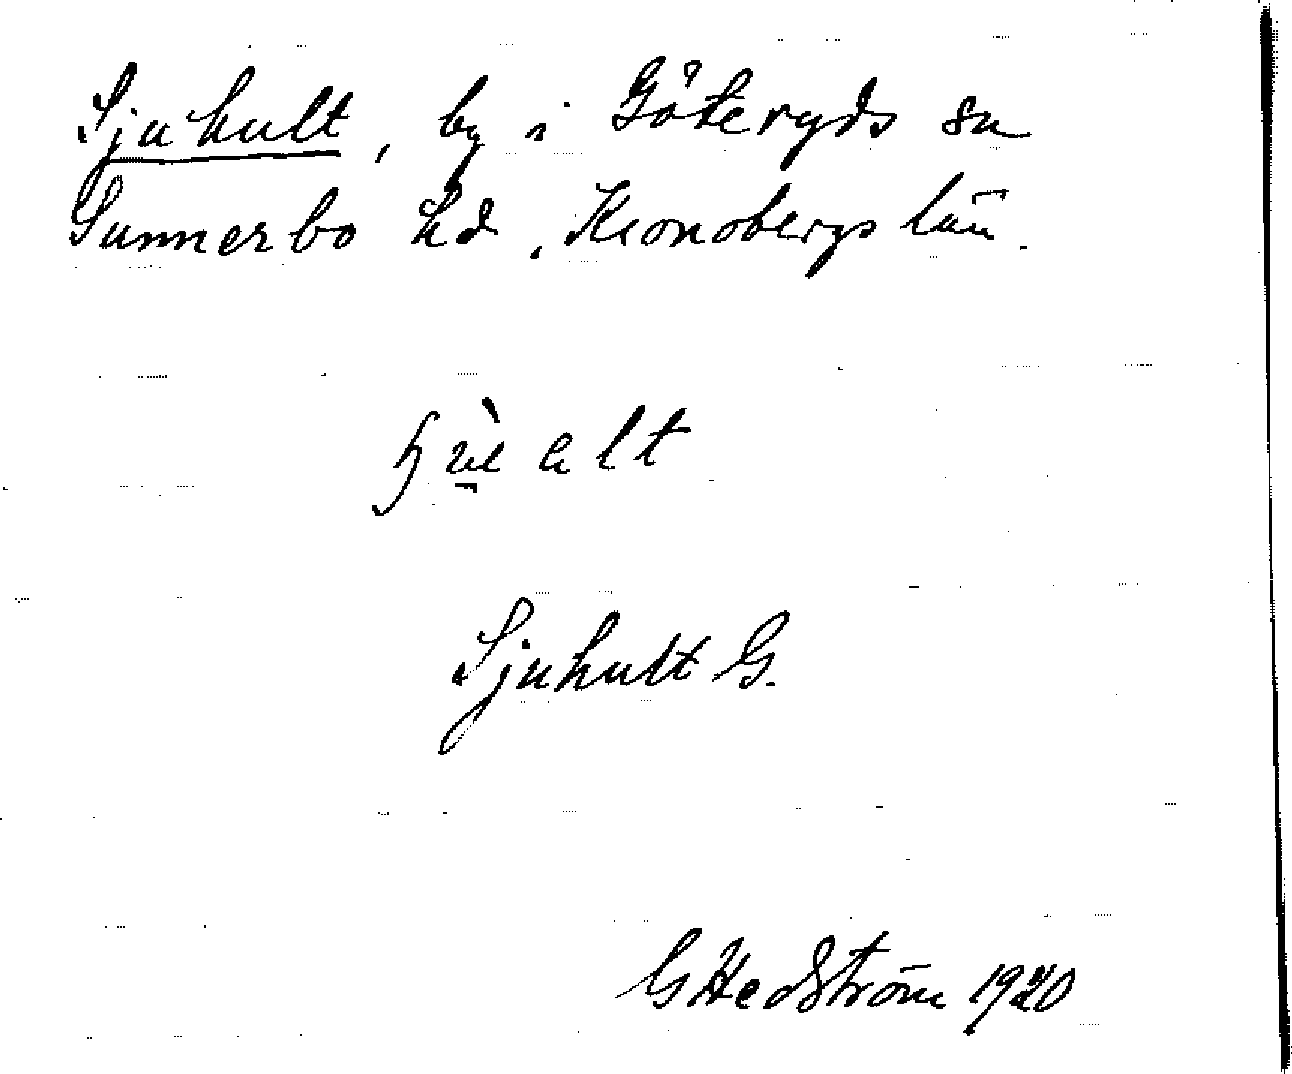 Sjuhult, by i Göteryds sn
Sunnerbo hd, Kronobergs län.
Sjuhult G.
G Hedström 1920